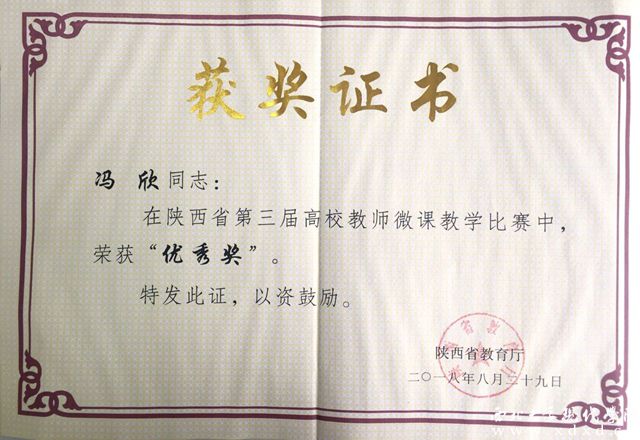 获奖证书
冯欣同志:
在陕西省第三届高校教师微课教学比赛中,
荣获“优秀奖”。
特发此证,以资鼓励。
陕西省教育厅
二〇一八年八月二十九日
陕西省教育厅